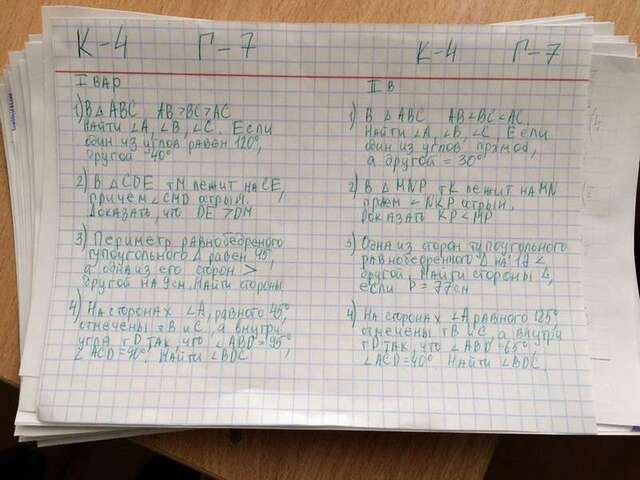 К-4 Г-7
I ВАР
1) В △ ABC AB > BC > AC
Найти ∠A, ∠B, ∠C. Если
один из углов равен 120°,
другой 40°
2) В △ CDE тM лежит на CE,
причём ∠CMD острый.
Доказать, что DE > DM
3) Периметр равнобедреного
тупоугольного △ равен 45,
а одна из его сторон >
другой на 9см. Найти стороны
4) На сторонах ∠A, равного 45°
отмечены тB и C, а внутри
угла тD так, что ∠ABD = 95°,
∠ACD = 90°. Найти ∠BDC
К-4 Г-7
II В
1) В △ ABC AB < BC < AC.
Найти ∠A, ∠B, ∠C, Если
один из углов прямой,
а другой = 30°
2) В △ MNP тK лежит на MN
причем ∠NKP отрый.
Доказать KP < MP
3) Одна из сторон тупоугольного
равнобедренного △ на 17 <
другой. Найти стороны △,
если P = 77см
4) На сторонах ∠A, равного 125°
отмечены тB и C, а внутри
тD так, что ∠ABD = 65°
∠ACD = 40° Найти ∠BDC.